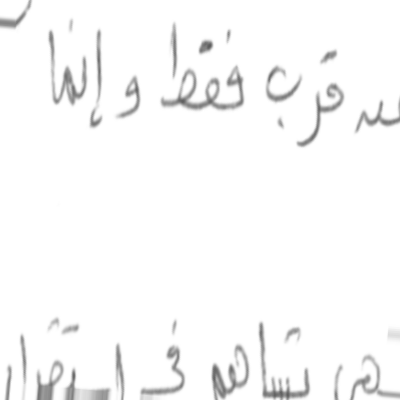 قرب فقط و إنما
هي تساهم في استقرار